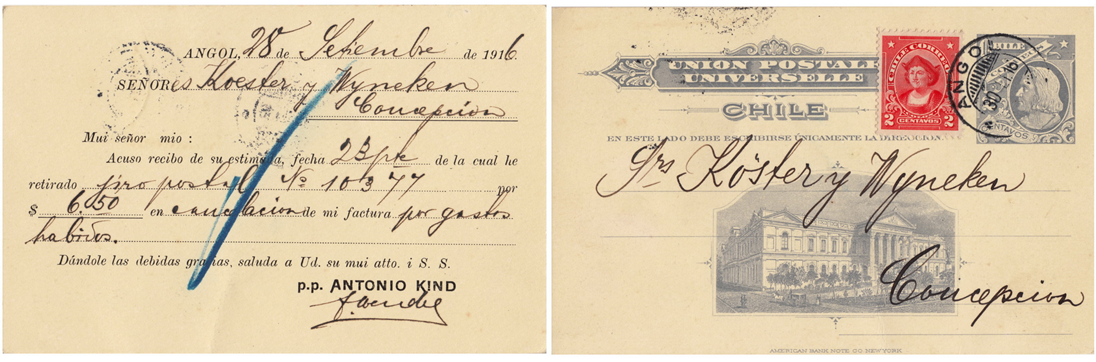 ANGOL, 28 de Setiembre de 1916
SEÑORES Koester y Wyneken
Concepcion
Mui señor mio:
Acuso recibo de su estimada, fecha 23 pte de la cual he
retirado jiro postal No 10377 por
$ 6.50 en cancelacion de mi factura por gastos
habidos.
Dándole las debidas gracias, saluda a Ud. su mui atto. i S. S.
p.p. ANTONIO KIND
UNION POSTALE
UNIVERSELLE
CHILE
CHILE CORREOS
2 2
CENTAVOS
ANGOL
30
16
CENTAVOS
EN ESTE LADO DEBE ESCRIBIRSE ÚNICAMENTE LA DIRECCION.
Srs Köster y Wyneken
Concepcion
AMERICAN BANK NOTE CO. NEW YORK